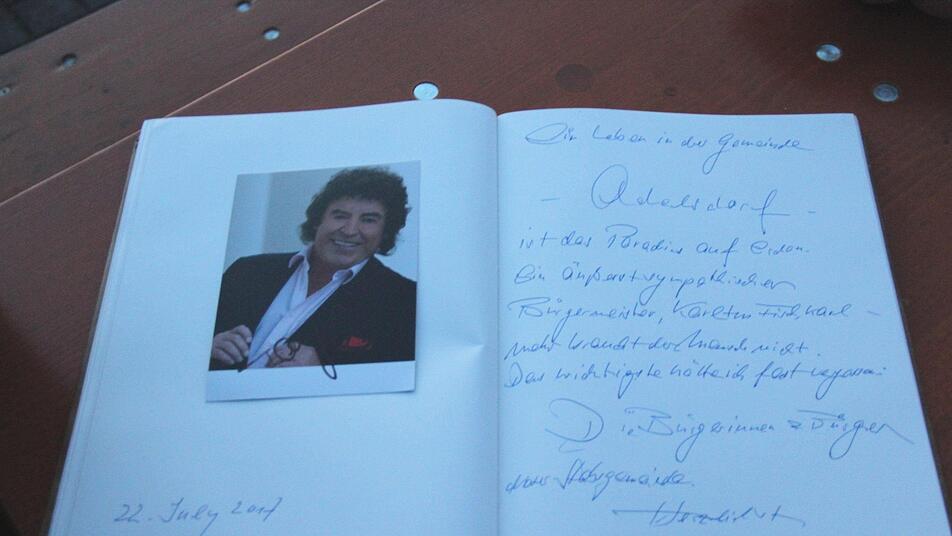 22. July 2017
Ein Leben in der Gemeinde
- Adelsdorf -
ist das Paradies auf Erden.
Ein äußerst sympathischer
Bürgermeister, Karsten Fischkal -
mehr braucht der Mensch nicht.
Das wichtigste hätte ich fast vergessen:
Die Bürgerinnen & Bürger
dieser
Herzlichst